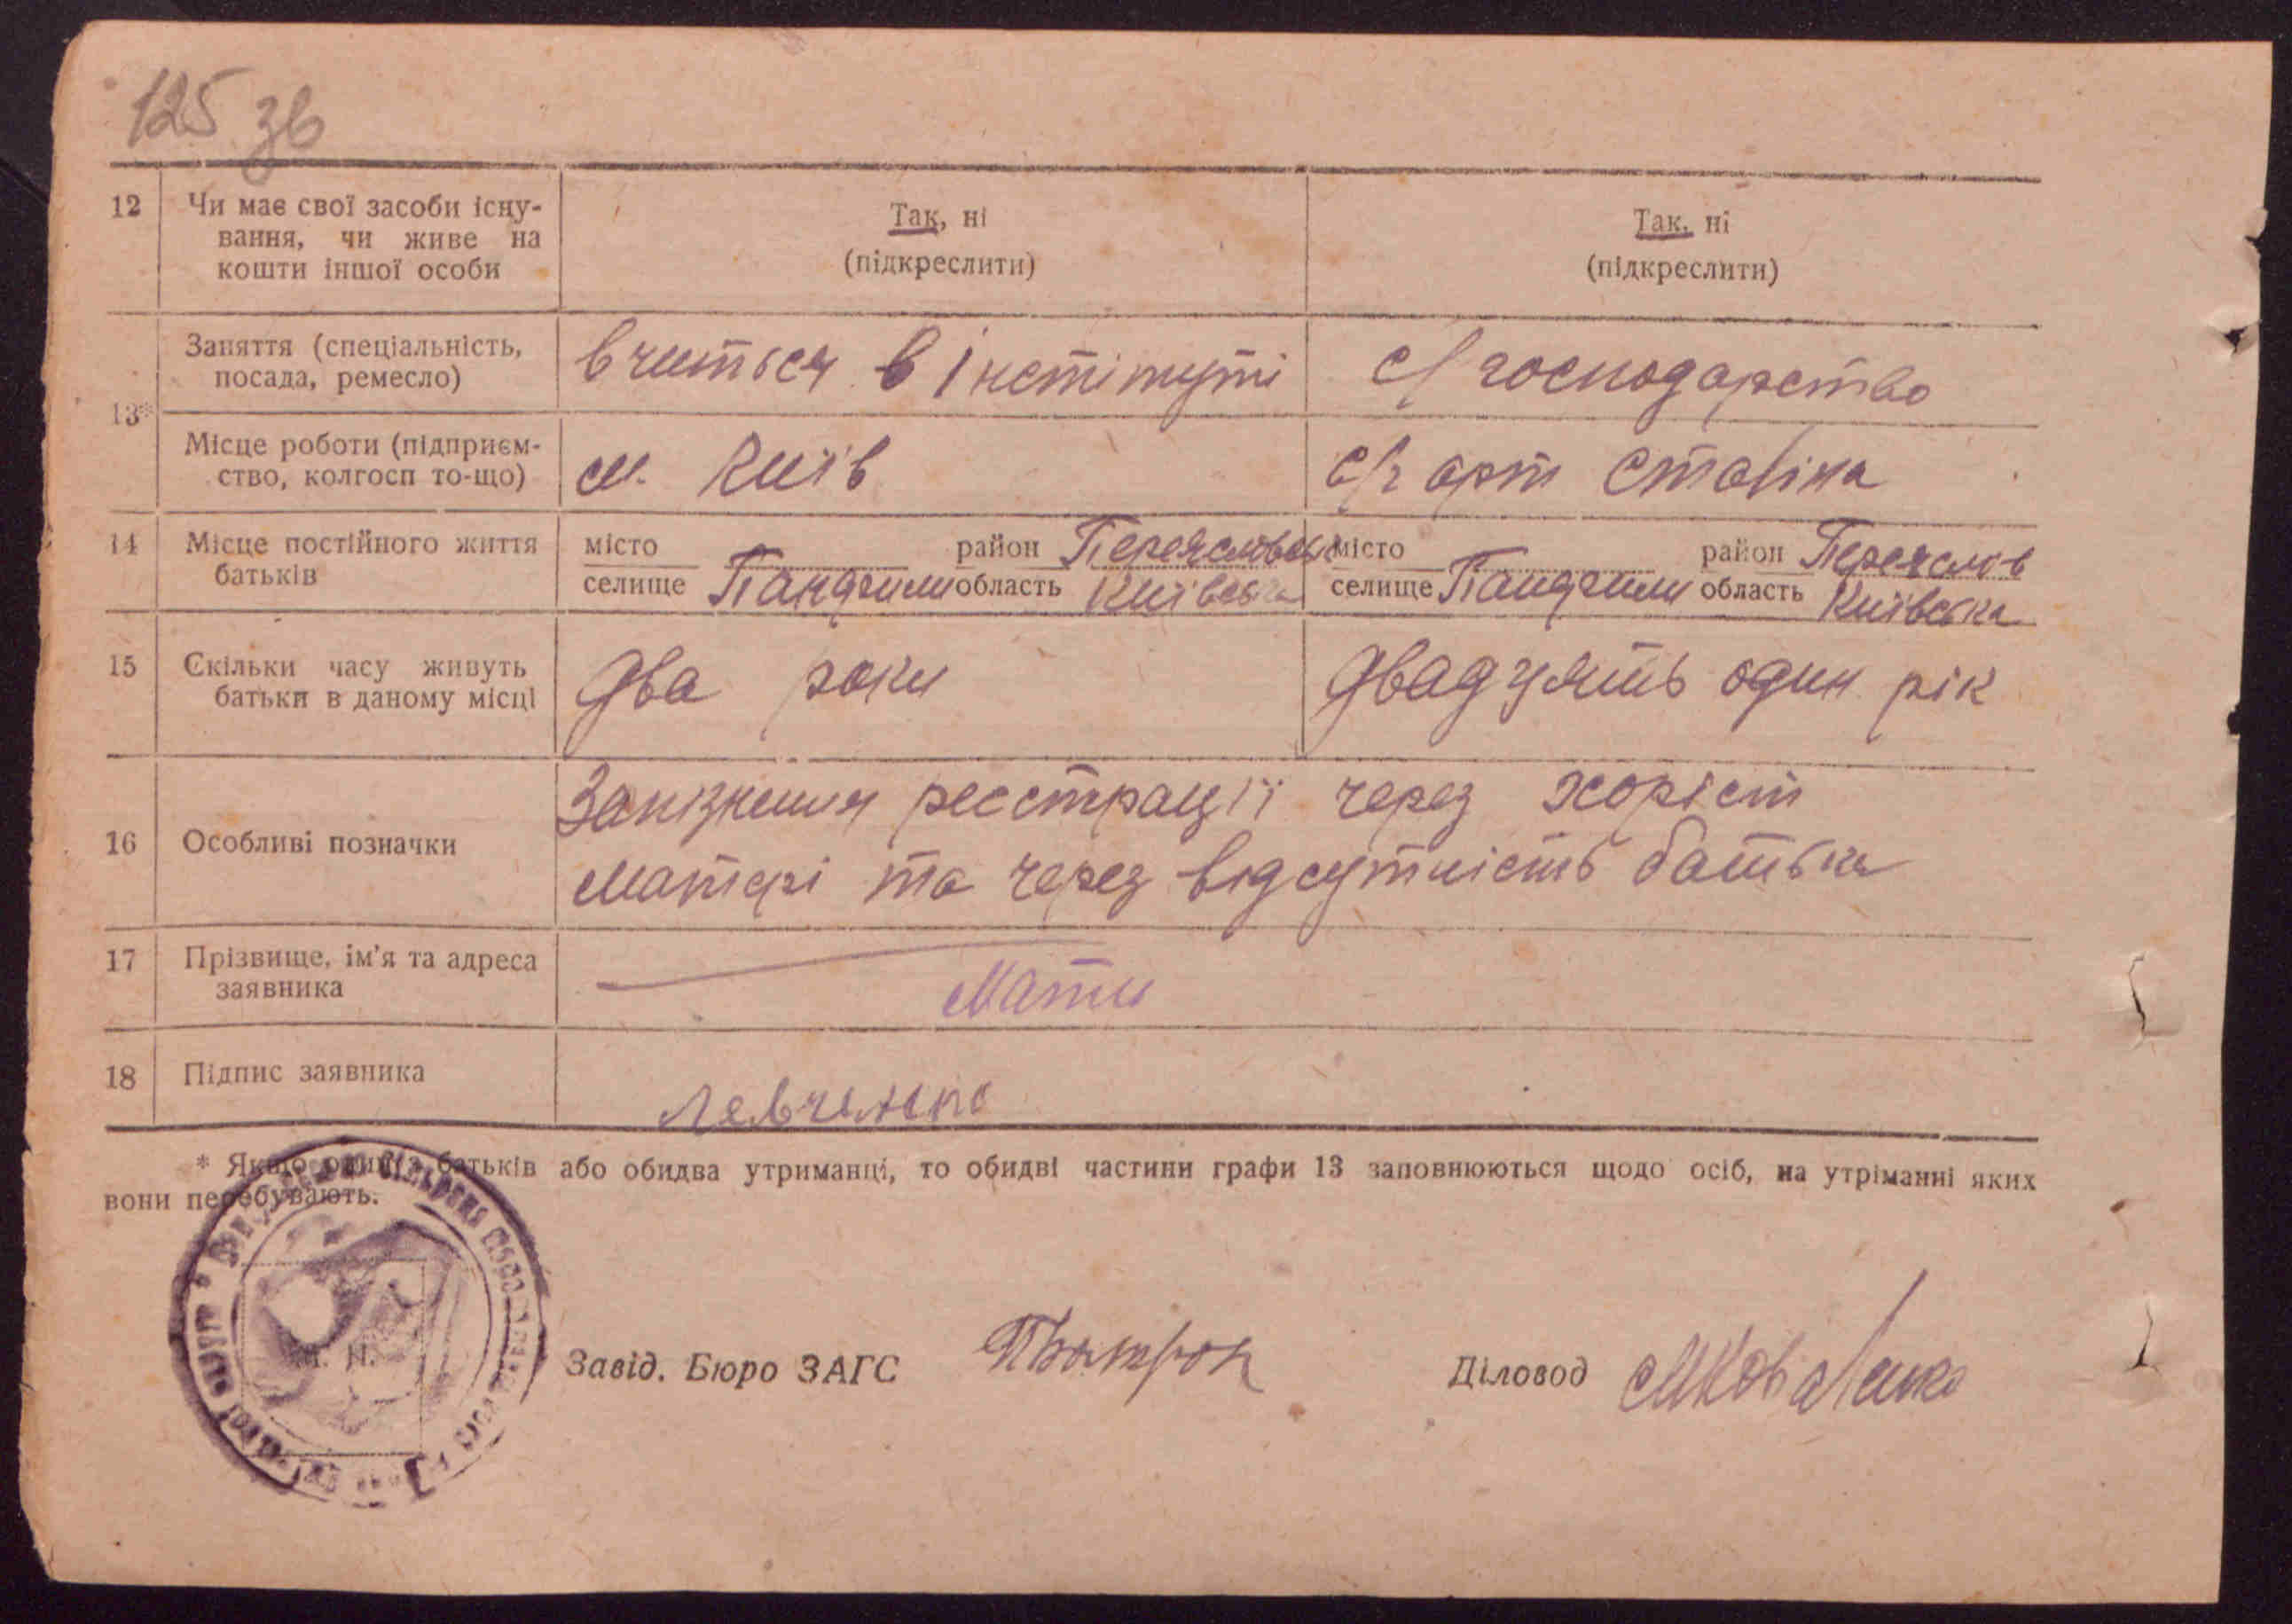 125 зв
12 Чи має свої засоби існу- Так, ні Так, ні
вання, чи живе на (підкреслити) (підкреслити)
кошти іншої особи
13* Заняття (спеціальність, вчиться в інстітуті с/господарство
посада, ремесло)
Місце роботи (підприєм- м. Київ с/г арт Сталіна
ство, колгосп то-що)
14 Місце постійного життя місто район Переяславськ місто район Переяслов
батьків селище Пандчили область Київська селище Пандчили область Київська
15 Скільки часу живуть два роки двадцять один рік
батьки в даному місці
Запізнення реєстрації через хорість
16 Особливі позначки матері та через відсутність батька
17 Прізвище, ім'я та адреса Мати
заявника
18 Підпис заявника Левченко
* Якщо один з батьків або обидва утриманці, то обидві частини графи 13 заповнюються щодо осіб, на утріманні яких
вони перебувають.
М. П.
Завід. Бюро ЗАГС Діловод МКоваленко